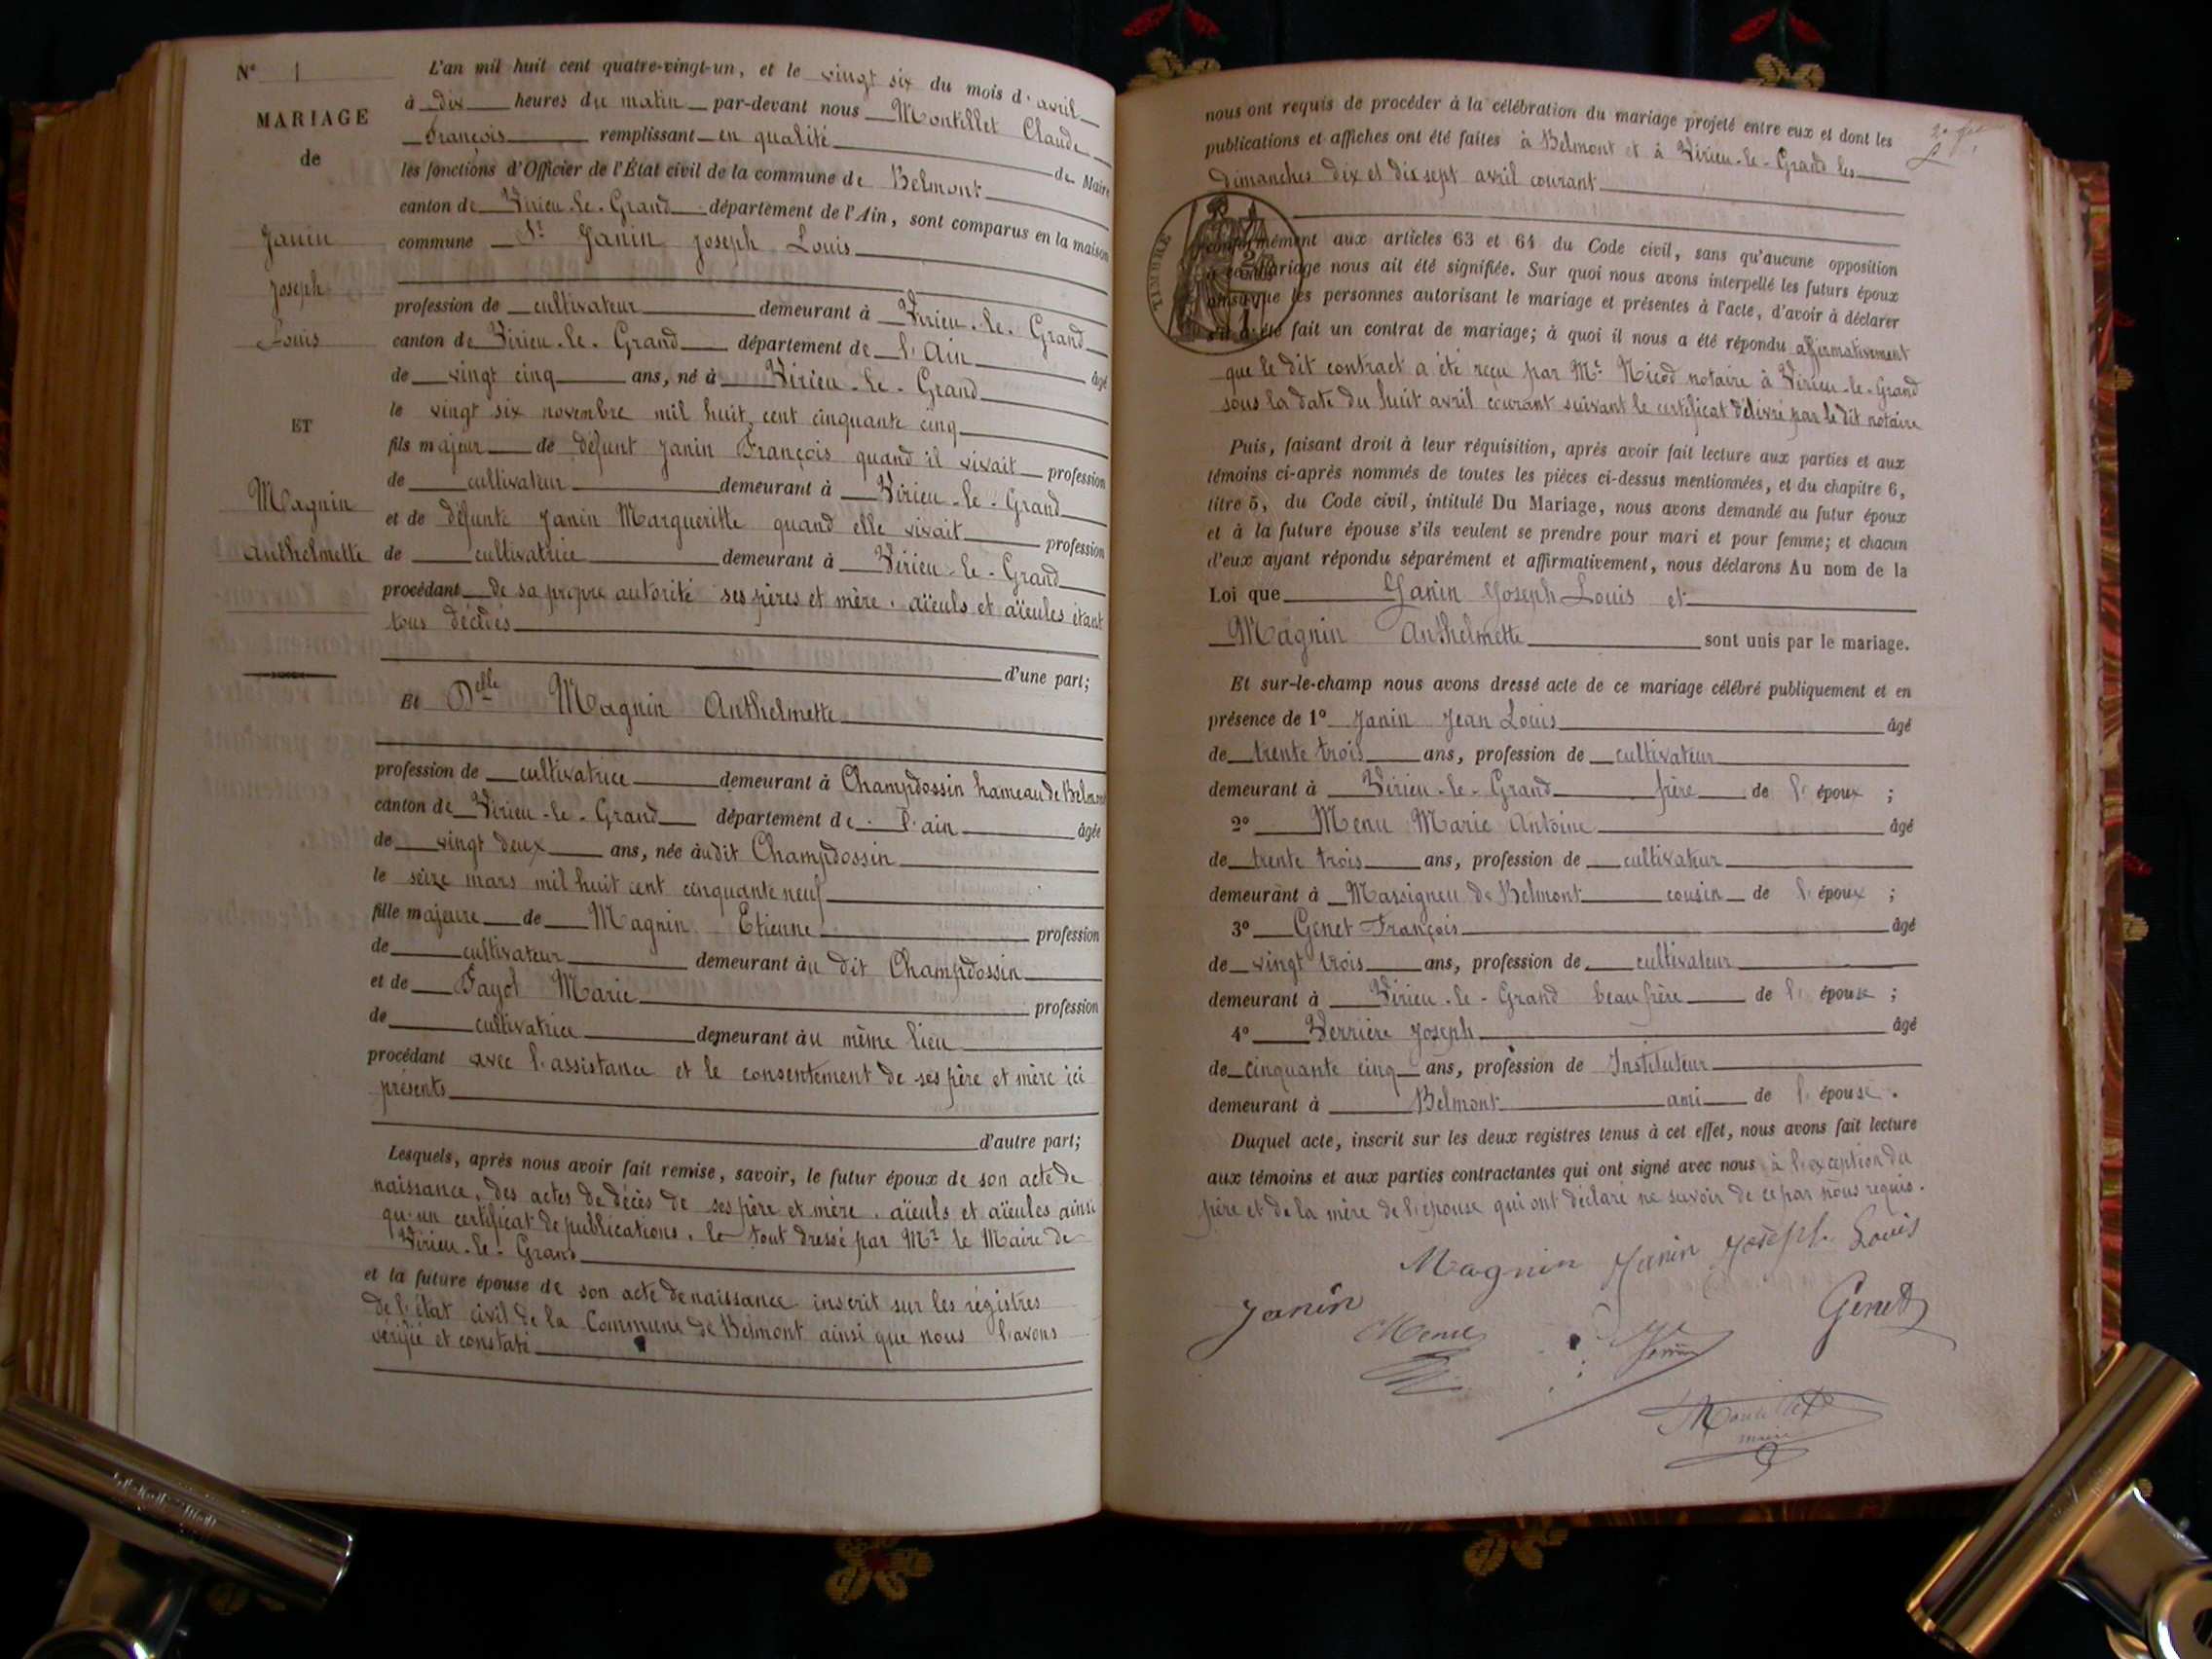 N° 1
MARIAGE
de
Janin
Joseph
Louis
ET
Magnin
Anthelmette
L'an mil huit cent quatre-vingt-un, et le vingt six du mois d'avril
à dix heures du matin par-devant nous Montillet Claude
François remplissant en qualité de Maire
les fonctions d'Officier de l'État civil de la commune de Belmont
canton de Virieu-le-Grand département de l'Ain, sont comparus en la maison
commune Sr Janin Joseph Louis
profession de cultivateur demeurant à Virieu-le-Grand
canton de Virieu-le-Grand département de l'Ain âgé
de vingt cinq ans, né à Virieu-le-Grand
le vingt six novembre mil huit cent cinquante cinq
fils majeur de défunt Janin François quand il vivait profession
de cultivateur demeurant à Virieu-le-Grand
et de défunte Janin Margueritte quand elle vivait profession
de cultivatrice demeurant à Virieu-le-Grand
procédant de sa propre autorité ses pères et mère, aïeuls et aïeules étant
tous décédés
d'une part;
Et Delle Magnin Anthelmette
profession de cultivatrice demeurant à Champdossin hameau de Belmont
canton de Virieu-le-Grand département de l'ain âgée
de vingt deux ans, née àudit Champdossin
le seize mars mil huit cent cinquante neuf
fille majeure de Magnin Etienne profession
de cultivateur demeurant àu dit Champdossin
et de Fayol Marie profession
de cultivatrice demeurant àu même lieu
procédant avec l'assistance et le consentement de ses père et mère ici
présents
d'autre part;
Lesquels, après nous avoir fait remise, savoir, le futur époux de son acte de
naissance, des actes de décès de ses père et mère, aïeuls et aïeules ainsi
qu'un certificat de publications, le tout dressé par Mr le Maire de
Virieu-le-Grand
et la future épouse de son acte de naissance inscrit sur les régistres
de l'état civil de la Commune de Belmont ainsi que nous l'avons
vérifié et constaté
nous ont requis de procéder à la célébration du mariage projeté entre eux et dont les
publications et affiches ont été faites à Belmont et à Virieu-le-Grand les
dimanches dix et dix sept avril courant
TIMBRE
conformément aux articles 63 et 64 du Code civil, sans qu'aucune opposition
à ce mariage nous ait été signifiée. Sur quoi nous avons interpellé les futurs époux
ainsi que les personnes autorisant le mariage et présentes à l'acte, d'avoir à déclarer
s'il a été fait un contrat de mariage; à quoi il nous a été répondu affirmativement
que le dit contract a été reçu par Me Nicod notaire à Virieu-le-Grand
sous la date du huit avril courant suivant le certificat délivré par le dit notaire
Puis, faisant droit à leur réquisition, après avoir fait lecture aux parties et aux
témoins ci-après nommés de toutes les pièces ci-dessus mentionnées, et du chapitre 6,
titre 5, du Code civil, intitulé Du Mariage, nous avons demandé au futur époux
et à la future épouse s'ils veulent se prendre pour mari et pour femme; et chacun
d'eux ayant répondu séparément et affirmativement, nous déclarons Au nom de la
Loi que Janin Joseph Louis et
Magnin Anthelmette sont unis par le mariage.
Et sur-le-champ nous avons dressé acte de ce mariage célébré publiquement et en
présence de 1° Janin Jean Louis âgé
de trente trois ans, profession de cultivateur
demeurant à Virieu-le-Grand frère de l'époux ;
2° Menu Marie Antoine âgé
de trente trois ans, profession de cultivateur
demeurant à Massigneu de Belmont cousin de l'époux ;
3° Genet François âgé
de vingt trois ans, profession de cultivateur
demeurant à Virieu-le-Grand beau frère de l'épouse ;
4° Verrière Joseph âgé
de cinquante cinq ans, profession de Instituteur
demeurant à Belmont ami de l'épouse.
Duquel acte, inscrit sur les deux registres tenus à cet effet, nous avons fait lecture
aux témoins et aux parties contractantes qui ont signé avec nous à l'exception du
père et de la mère de l'épouse qui ont déclaré ne savoir de ce par nous requis.
Magnin Janin Joseph Louis
Janin Menu Genet
Montillet
maire